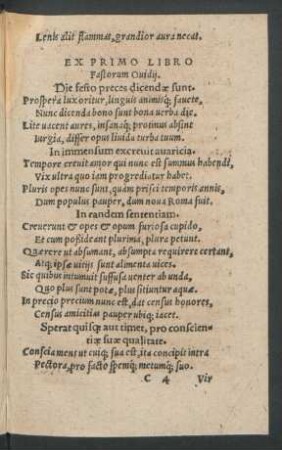 Lenis alit flammas, grandior aura necat.
EX PRIMO LIBRO
Fastorum Ouidij.
Die festo preces dicendæ sunt.
Prospera lux oritur, linguis animisq; fauete,
Nunc dicenda bono sunt bona uerba die.
Lite uacent aures, insanaq; protinus absint
Iurgia, differ opus liuida turba tuum.
In immensum excreuit auaricia.
Tempore creuit amor qui nunc est summus habendi,
Vix ultra quo iam progrediatur habet.
Pluris opes nunc sunt, quàm prisci temporis annis,
Dum populus pauper, dum noua Roma fuit.
In eandem sententiam.
Creuerunt & opes & opum furiosa cupido,
Et cum possideant plurima, plura petunt.
Quærere ut absumant, absumpta requirere certant,
Atq; ipsæ uitijs sunt alimenta uices.
Sic quibus intumuit suffusa uenter ab unda,
Quo plus sunt potæ, plus sitiuntur aquæ.
In precio precium nunc est, dat census honores,
Census amicitias pauper ubiq; iacet.
Sperat quisq; aut timet, pro conscien-
tiæ suæ qualitate.
Conscia mens ut cuiq; sua est, ita concipit intra
Pectora, pro facto spemq; metumq; suo.
C 4 Vir